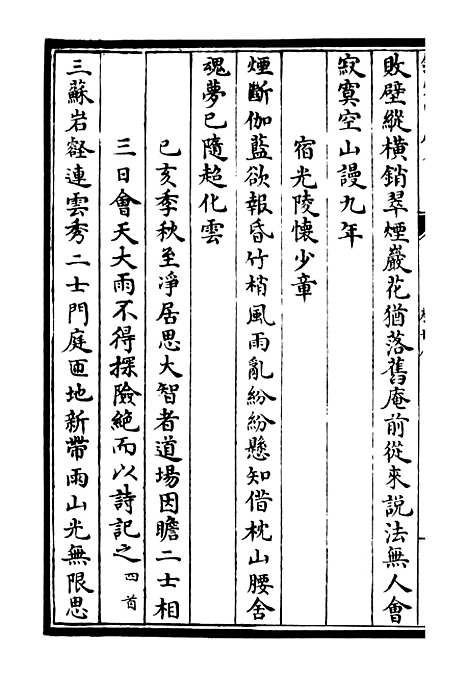 敗壁縱横銷翠煙巖花猶落舊庵前從來説法無人會
寂寞空山謾九年
宿光陵懷少章
煙斷伽藍欲報昏竹梢風雨亂紛紛懸知借枕山腰舍
魂夢已隨超化雲
已亥季秋至淨居思大智者道場因瞻二士相
三日會天大雨不得探險絶而以詩記之四首
三蘇岩壑連雲秀二士門庭匝地新帶雨山光無限思